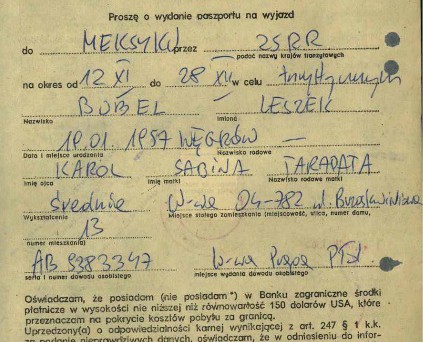 Proszę o wydanie paszportu na wyjazd
do MEKSYKU przez ZSRR
podać nazwy krajów tranzytowych
na okres od 12 XI do 28 XII w celu turystycznym
BUBEL LESZEK
Nazwisko Imiona
10.01.1957 WĘGRÓW —
Data i miejsce urodzenia Nazwisko rodowe
KAROL SABINA TARAPATA
Imię ojca Imię matki Nazwisko rodowe matki
średnie W-wa 04-782 ul. Brzoskwiniowa
Wykształcenie Miejsce stałego zamieszkania (miejscowość, ulica, numer domu,
13
numer mieszkania)
AB 9383347 W-wa Praga Płd.
seria i numer dowodu osobistego miejsce wydania dowodu osobistego
Oświadczam, że posiadam (nie posiadam*) w Banku zagraniczne środki
płatnicze w wysokości nie niższej niż równowartość 150 dolarów USA, które
przeznaczam na pokrycie kosztów pobytu za granicą.
Uprzedzony(a) o odpowiedzialności karnej wynikającej z art. 247 § 1 k.k.
za podanie nieprawdziwych danych, oświadczam, że w odniesieniu do infor-